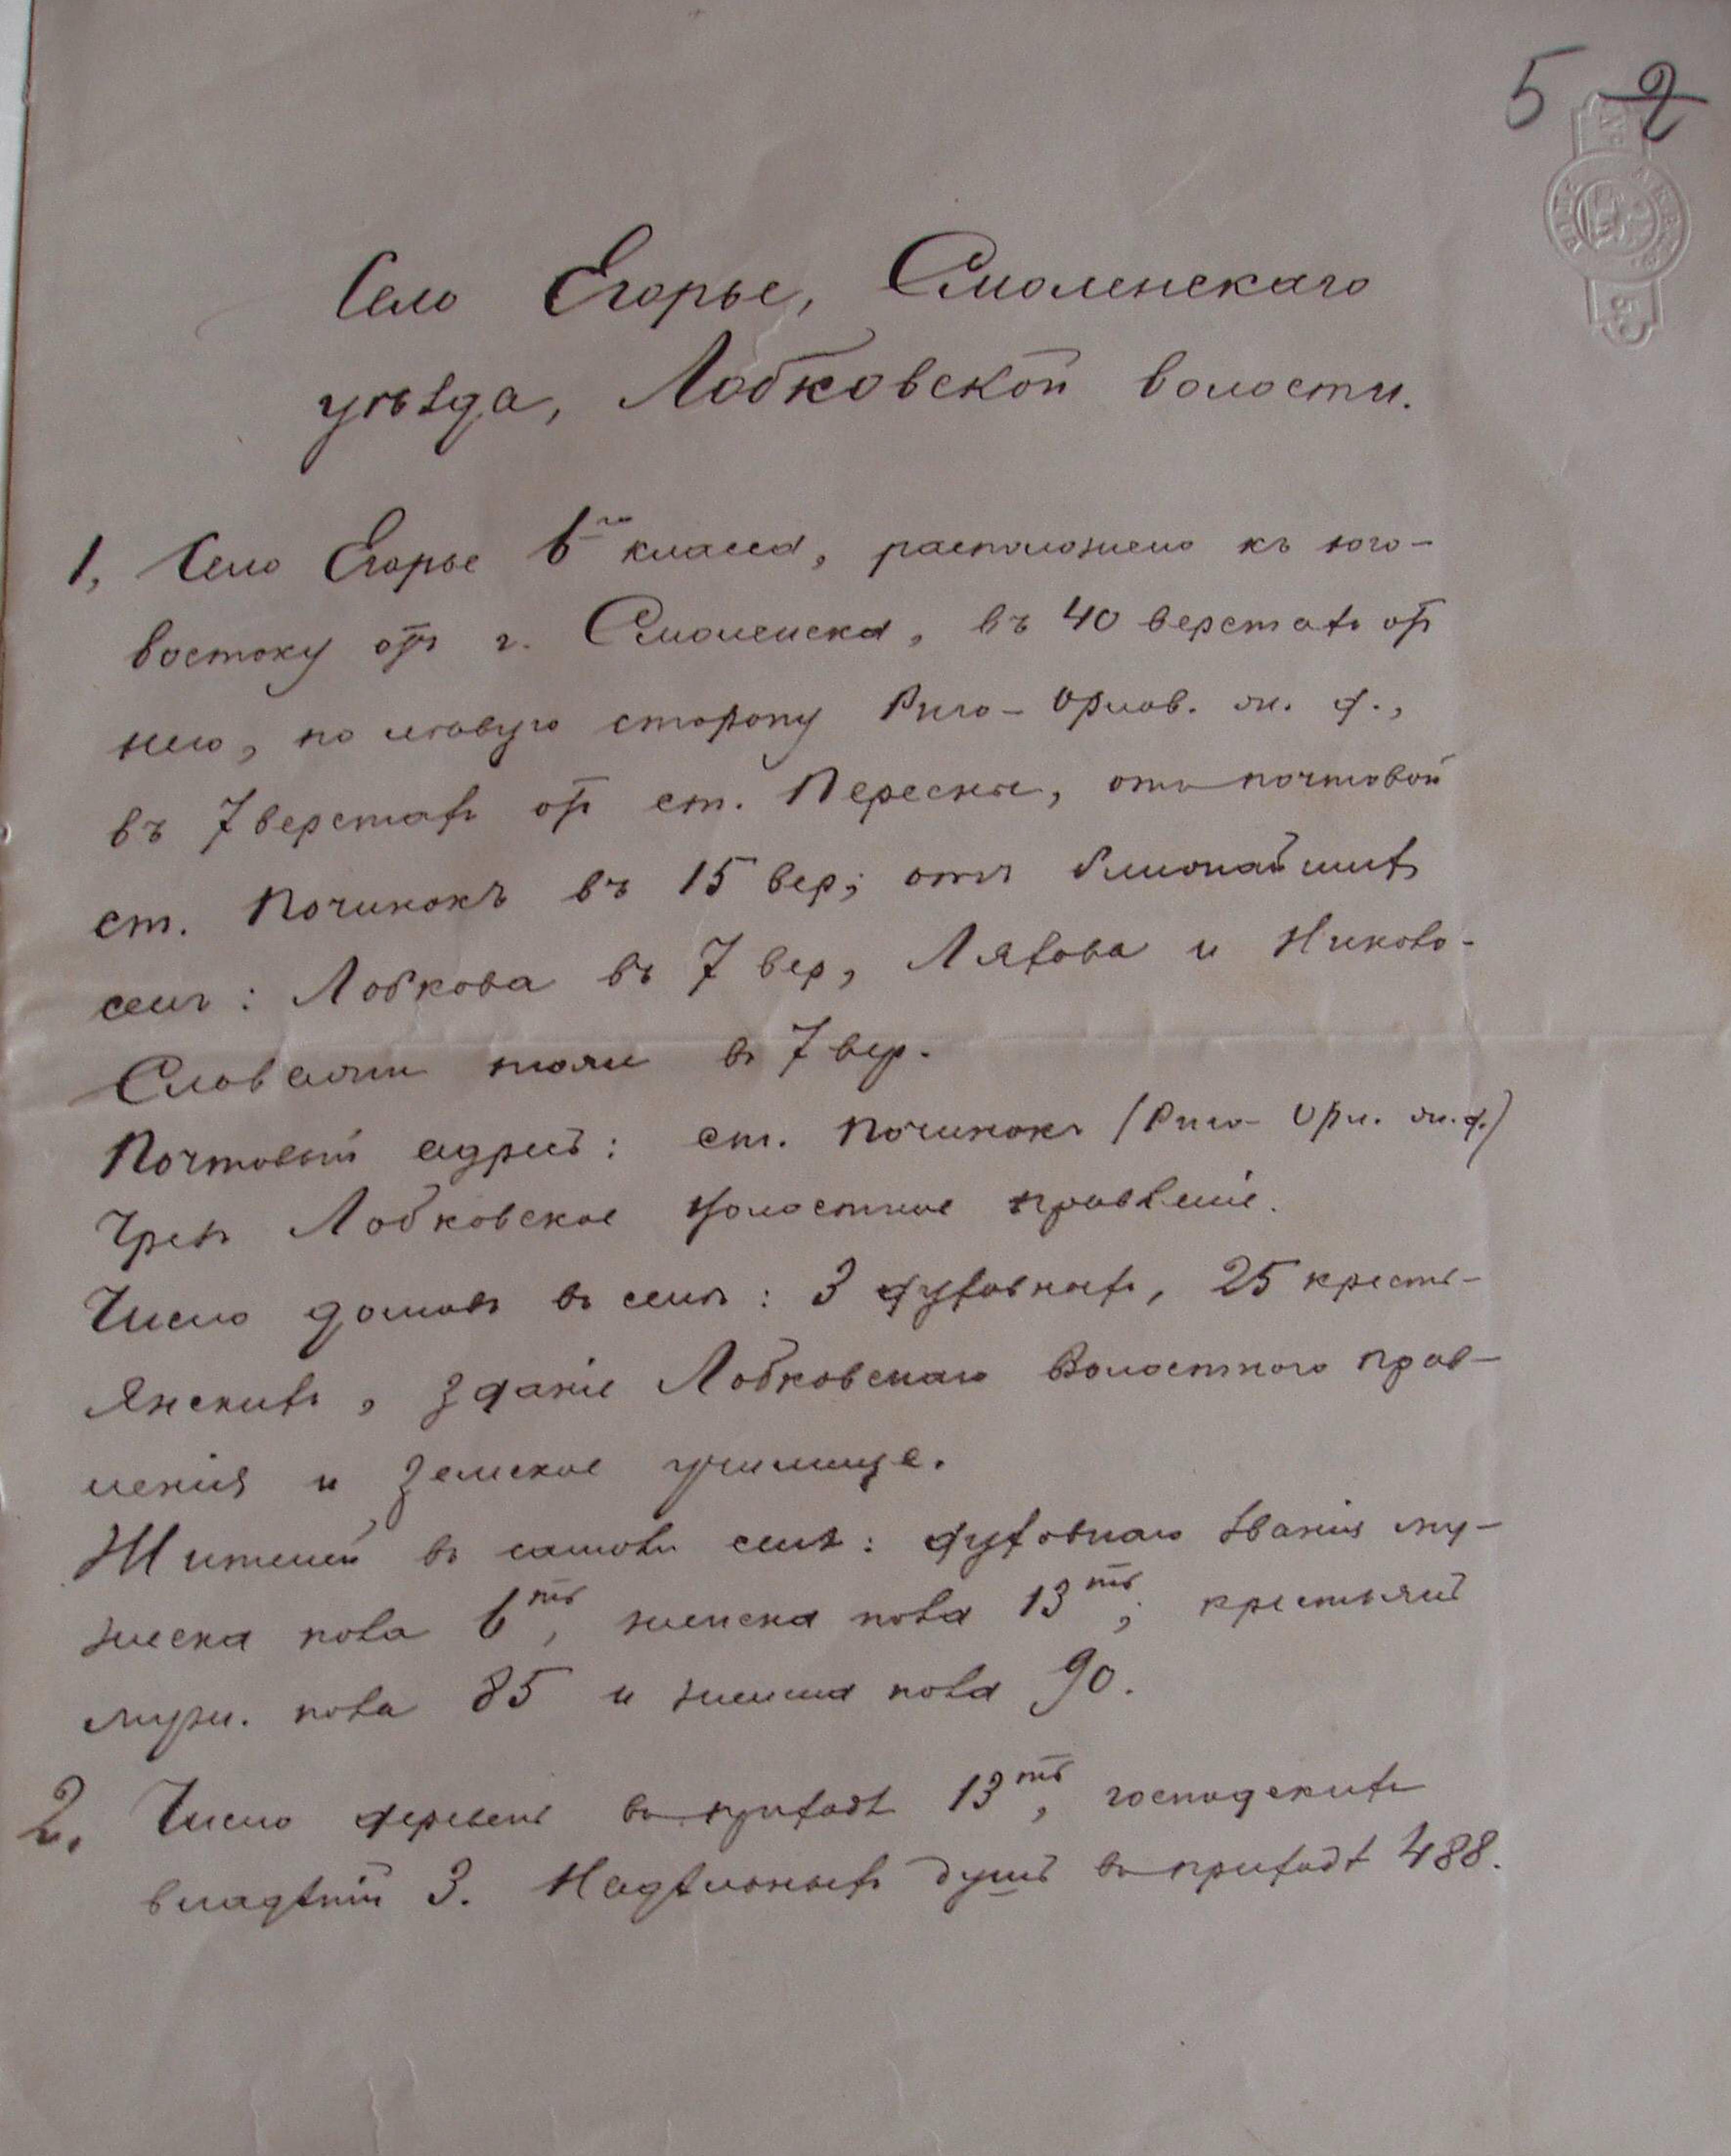 5 2
Село Егорье, Смоленскаго
уѣзда, Лобковской волости.
1, Село Егорье 6го класса, расположено къ юго-
востоку отъ г. Смоленска, въ 40 верстахъ отъ
него, по лѣвую сторону Риго-Орлов. ж. д.,
въ 7 верстахъ отъ ст. Пересна, отъ почтовой
ст. Починокъ въ 15 вер; отъ ближайшихъ
селъ: Лобкова въ 7 вер, Ляхова и Николо-
Словажи тоже въ 7 вер.
Почтовый адресъ: ст. Починокъ (Риго-Орл. ж. д.)
Чрезъ Лобковское волостное правленіе.
Число домовъ въ селѣ: 3 духовныхъ, 25 кресть-
янскихъ, зданіе Лобковскаго Волостного прав-
ленія и Земское училище.
Жителей въ самомъ селѣ: духовнаго званія му-
жеска пола 6ть, женска пола 13ть; крестьянъ
муж. пола 85 и женска пола 90.
2. Число деревень въ приходѣ 13ть, господскихъ
владѣній 3. Надѣльныхъ душъ въ приходѣ 488.